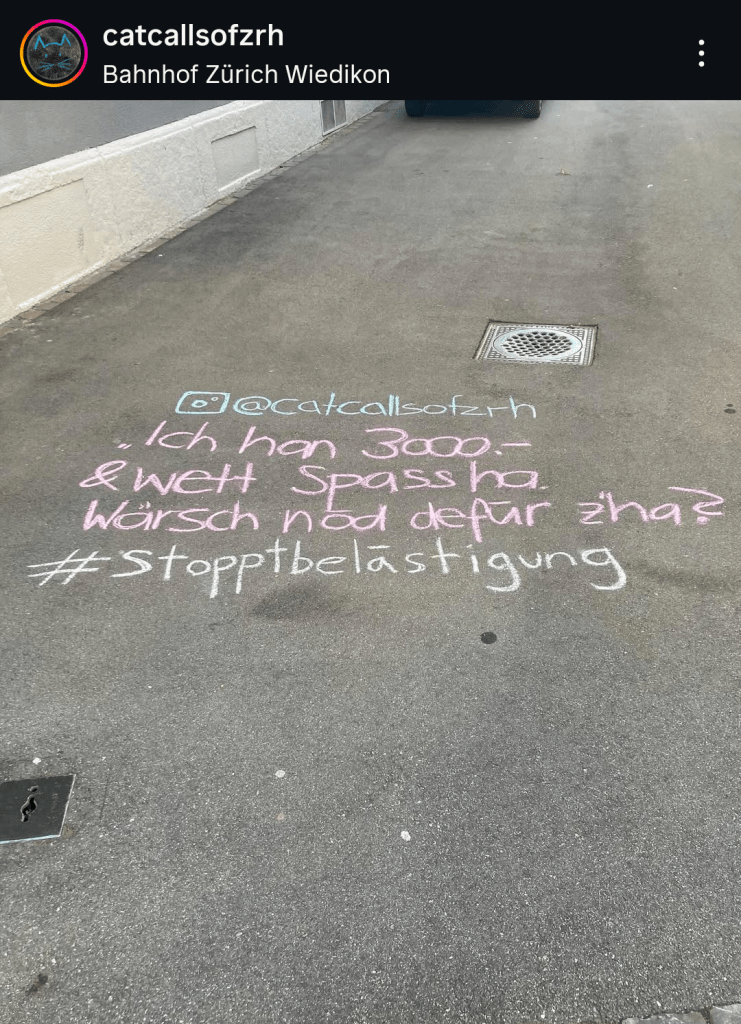 catcallsofzrh
Bahnhof Zürich Wiedikon
@catcallsofzrh
„Ich han 3000.-
& wett Spass ha.
Wärsch nöd defür z'ha?
#stopptbelästigung